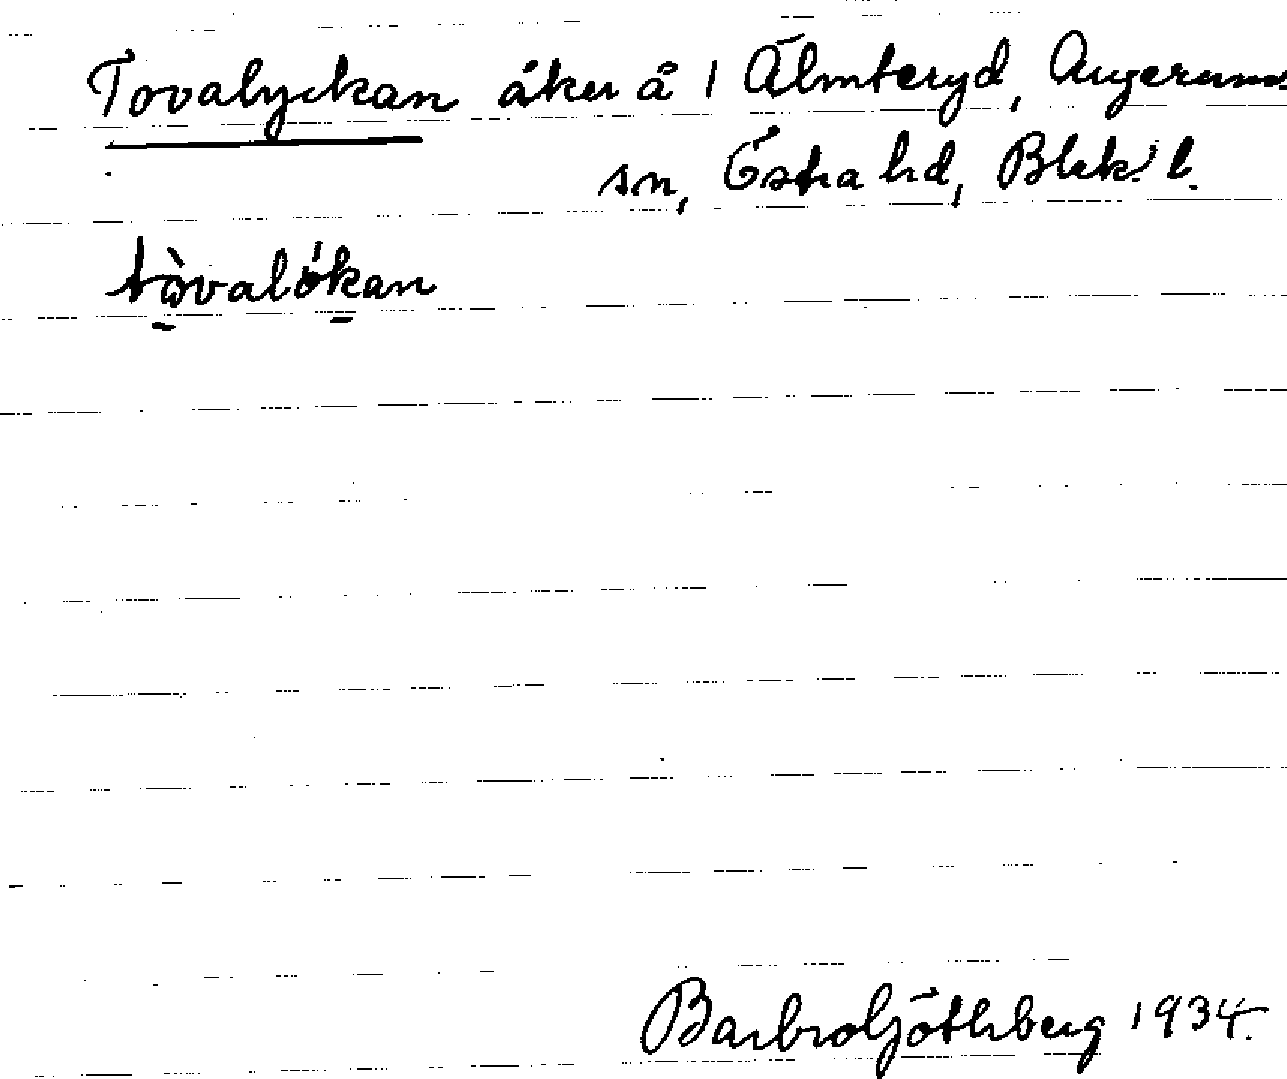 Tovalyckan åker å 1 Älmteryd, Augerums
sn, Östra hd, Blek. l.
tòvalókan
Barbro Göthberg 1934.